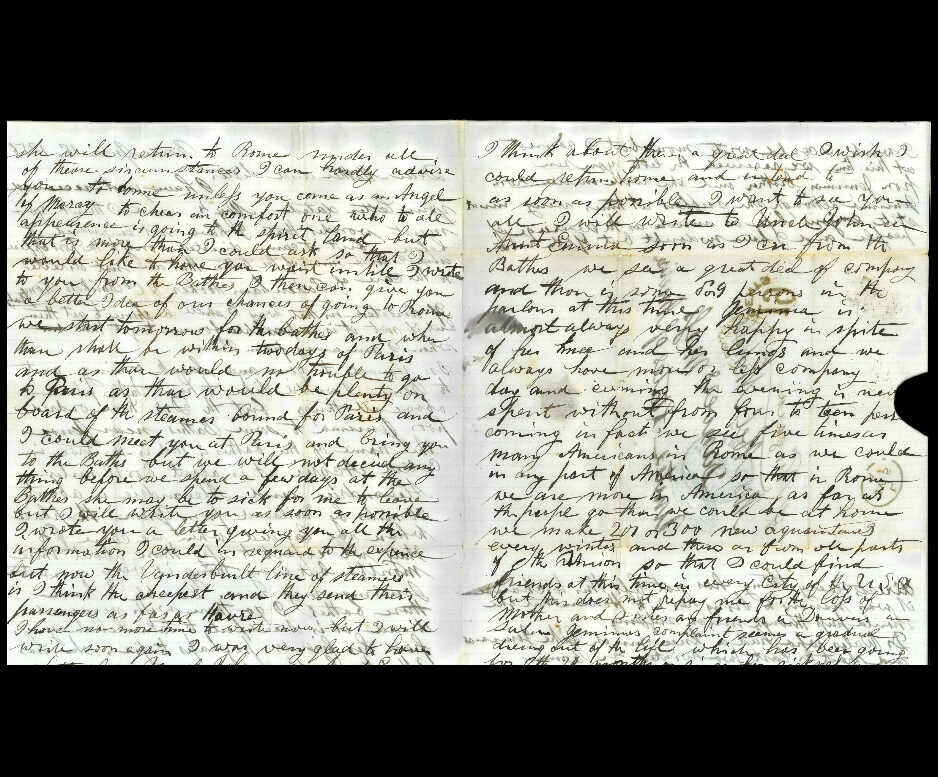 she will return to Rome under all
of these sircumstances I can hardly advise
you to come unless you come as an Angel
of Mercy to chear an comfort one who to all
appearence is going to th spirit land but
that is more than I could ask so that I
would like to have you wait untile I wrote
to you from the Bathes I then can give you
a better Idea of our chances of going to Rome
we start tomorrow for the bathes and when
thare shall be within two days of Paris
and as thare would no trouble to go
to Paris as thare would be plenty on
board of th steamer bound for Paris and
I could meet you at Paris and bring you
to the Bathes but we will not decied any
thing before we spend a few days at the
Bathes she may be to sick for me to leave
but I will write you as soon as possible
I wrote you a letter giveing you all th
information I could in regard to the expence
but now the Vanderbuilt line of steamers
is I think the cheapest and they send their
passengers as far as Havre
I have no more time to write now but I will
write soon again I was very glad to hear
I think about thare a great deal I wish I
could return home and intend to
as soon as posible I want to see you
all I will write to Uncle John &
Aunt Emma soon as I can from th
Bathes we see a great deal of company
and thare is some in th
parlour at this time Jemima is
almost always verry happy in spite
of her knee and her lungs and we
always have more or less company
day and evenings the evening is never
spent without from four to teen pers
coming in fact we see five times as
many Americans in Rome as we could
in any part of America so that in Rome
we are more in America as far as
th peple go than we could be at home
we make 200 or 300 new aquaintances
every winter and thare as from all parts
of th Union so that I could find
friends at this time in every City of th U.S
but this does not repay me for the loss of
Mother and Sisters an friends in Danvers an
Salem Jemimas complaint seemes a gradual
dieing out of the life which has been going